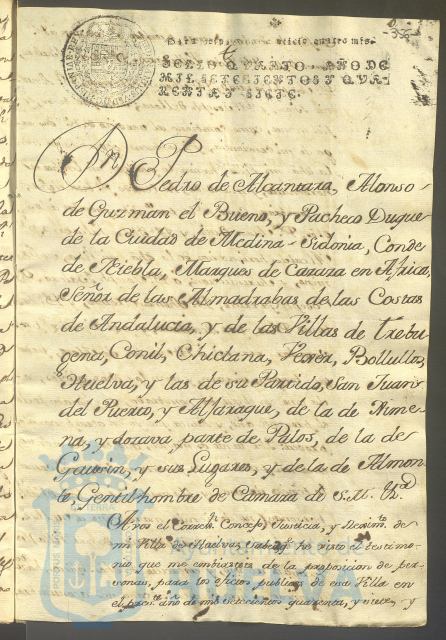 Para despachos de oficio quatro mrs.
SELLO QVARTO, AÑO DE
MIL SETECIENTOS Y QVA-
RENTA Y SIETE.
Dn Pedro de Alcantara, Alonso
de Guzmán el Bueno, y Pacheco Duque
de la Ciudad de Medina-Sidonia, Conde
de Niebla, Marques de Cazaza en Africa,
Señor de las Almadrabas de las Costas
de Andalucia, y de las Villas de Trebu-
gena, Conil, Chiclana, Vexer, Bollullos,
Huelva, y las de su Partido, San Juan
del Puerto, y Alfaraque, de la de Xime-
na, y dozava parte de Palos, de la de
Gaucin, y sus Lugares, y de la de Almon-
te, Gentilhombre de Camara de S.M.
A vos el Concejo, Justicia, y Reximto. de
mi Villa de Huelva, Sabed he visto el testimo-
nio que me embiasteis de la proposicion de per-
sonas, para los oficios publicos de esa Villa en
el proxo. año de mil setecientos quarenta, y siete, y